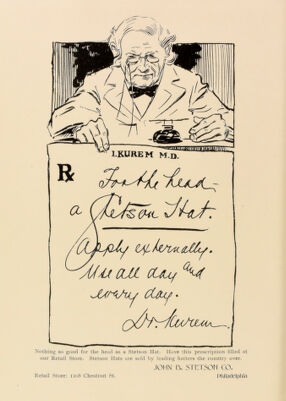 I. KUREM M.D.
Rx
For the head -
a Stetson Hat.
Apply externally.
Use all day and
every day.
Dr. Kurem
Nothing so good for the head as a Stetson Hat. Have this prescription filled at
our Retail Store. Stetson Hats are sold by leading hatters the country over.
JOHN B. STETSON CO.
Retail Store: 1108 Chestnut St.
Philadelphia